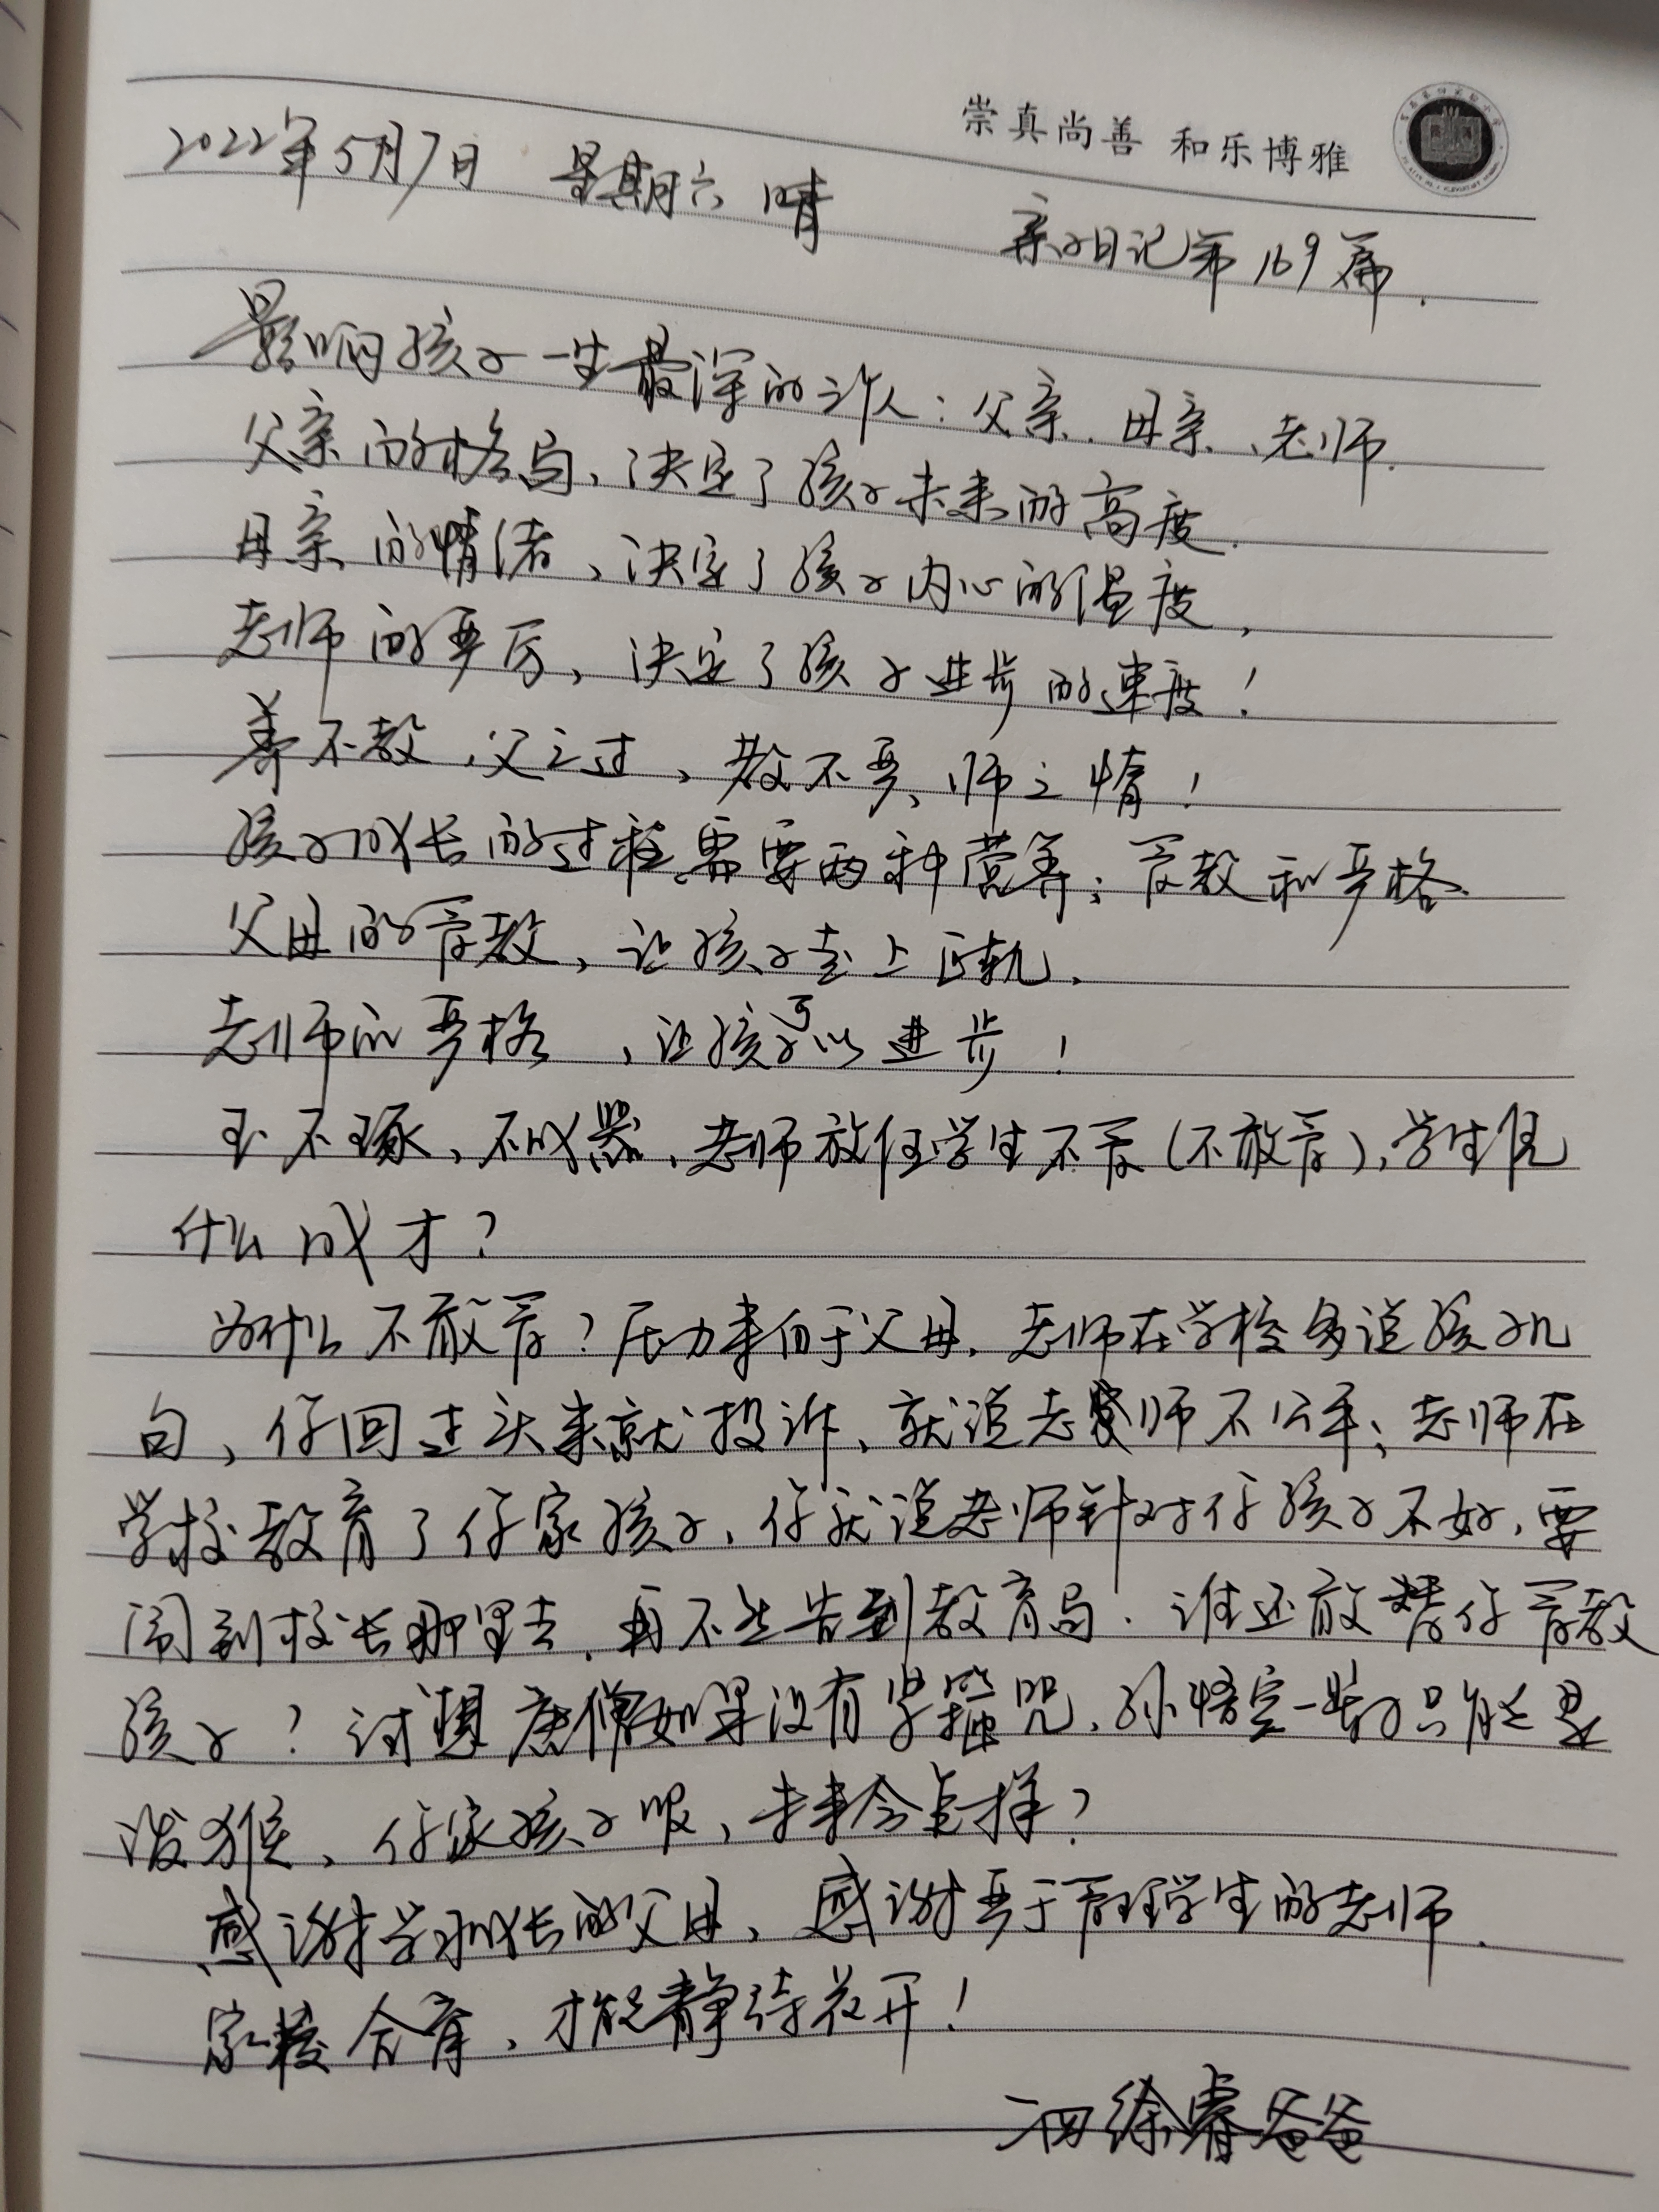 崇真尚善 和乐博雅
2022年5月7日 星期六 晴
亲子日记第169篇.
影响孩子一生最深的三个人:父亲、母亲、老师.
父亲的格局、决定了孩子未来的高度.
母亲的情绪、决定了孩子内心的温度,
老师的严厉,决定了孩子进步的速度!
养不教,父之过,教不严、师之惰!
孩子成长的过程需要两种营养:管教和严格.
父母的管教,让孩子走上正轨.
老师的严格,让孩子可以进步!
玉不琢、不成器、老师放任学生不管(不敢管),学生凭
什么成才?
为什么不敢管?压力来自于父母.老师在学校多说孩子几
句,你回过头来就投诉、就说老师不公平;老师在
学校教育了你家孩子,你就说老师针对你孩子不好,要
闹到校长那里去,再不然告到教育局.谁还敢替你管教
孩子?试想唐僧如果没有紧箍咒,孙悟空一辈子只能是
泼猴,你家孩子呢,未来会怎样?
感谢学习成长的父母、感谢善于管理学生的老师.
家校合育,才能静待花开!
徐睿爸爸